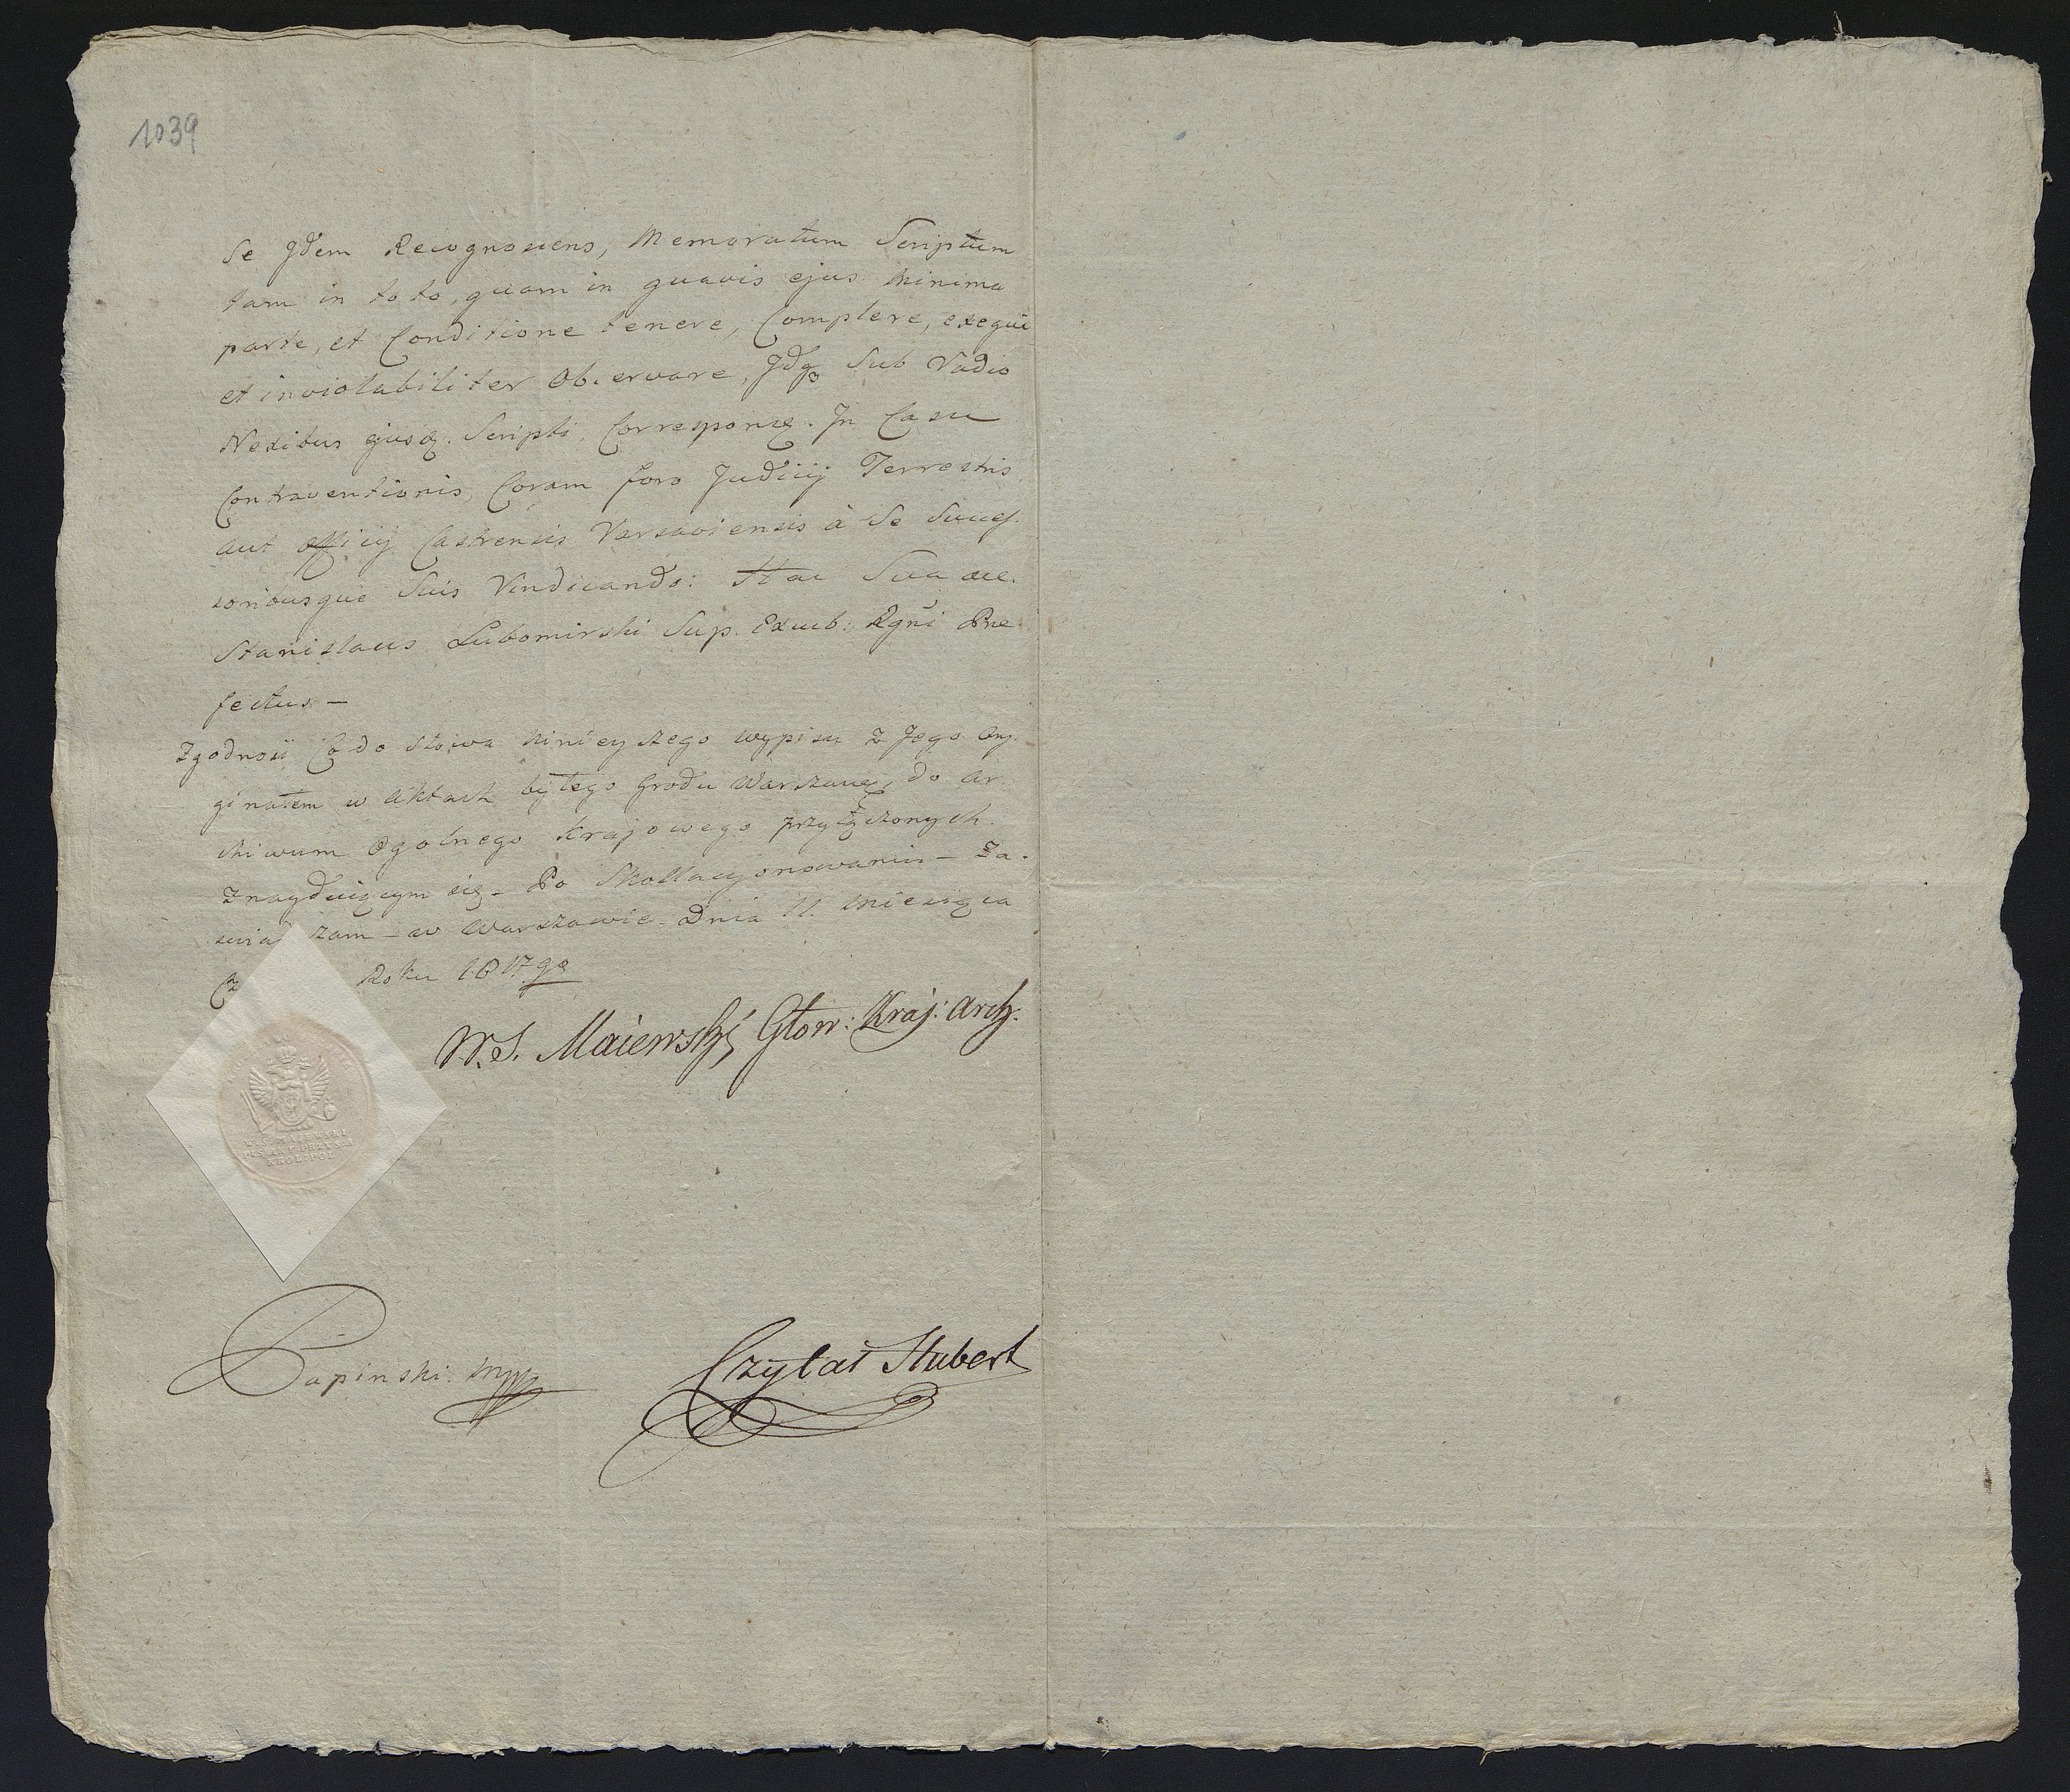 1039
Se Jdem Recognoscens, Memoratum Scriptum
tam in toto, quam in quavis ejus minima
parte, et Conditione tenere, Complere, exequi
et inviolabiliter Observare, Jdq3 Sub Vadio
Nexibus ejusq. Scripti, Corresponẽ. Jn Casu
Contraventionis, Coram foro Judicij Terrestris,
aut officij Castrensis Varsaviensis à Se Succes-
soribusque Suis Vindicando: Hac Sua
Stanislaus Lubomirski Sup. Excub: Rgñi Præ
fectus –
Zgodność Co do słowa niniejszego wypisu z Jego Ory-
ginałem w aktach byłego Grodu Warszaws. do Ar
chiwum Ogolnego Krajowego przyłączonych
znayduiącym się – Po Skollacyonowaniu – Za-
swiad zam – w Warszawie – Dnia 11. Miesiąca
Cz Roku 1817go
W. S. Maiewski, Głow: Kraj: Arch.
W S MAIEWSKI
PISARZ AKT DAWN
KROL: POL
Łapinski mpp
Czytał Hubert